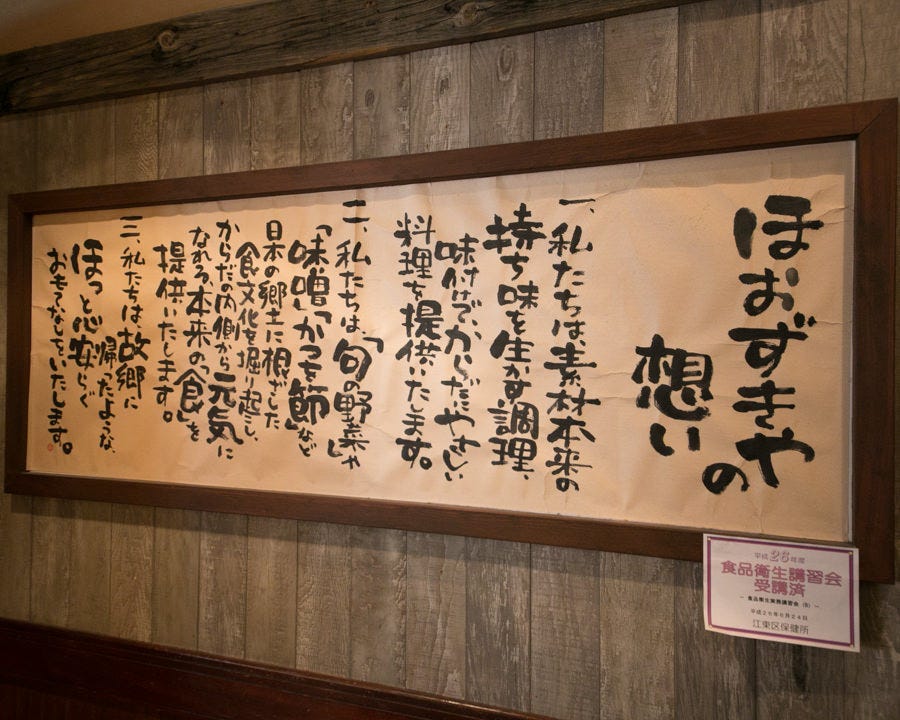 ほおずきやの
想い
一、私たちは、素材本来の
持ち味を生かす調理、
味付けで、からだにやさしい
料理を提供いたします。
二、私たちは、「旬の野菜」や
「味噌」「かつを節」など
日本の郷土に根ざした
食文化を掘り起こし、
からだの内側から元気に
なれる、本来の「食」を
提供いたします。
三、私たちは、故郷に
帰ったような、
ほっと心安らぐ
おもてなしをいたします。
平成26年度
食品衛生講習会
受講済
－ 食品衛生実務講習会（B）－
平成26年6月24日
江東区保健所